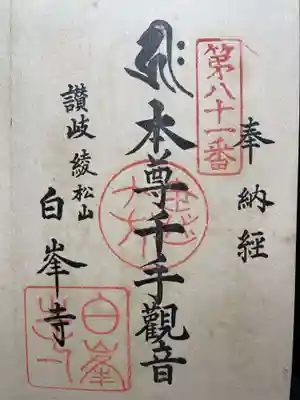 奉納経
第八十一番
本尊千手觀音
讃岐 綾松山
白峯寺